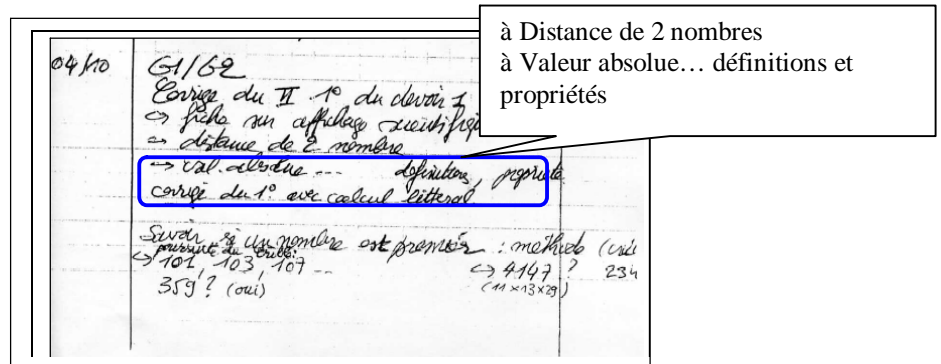 à Distance de 2 nombres
à Valeur absolue… définitions et
propriétés
04/10
G1/G2
Corrigé du II 1° du devoir 1
↪ fiche sur affichage scientifiq
↪ distance de 2 nombre
↪ val. absolue ... definitions, propriété
corrigé du 1° avec calcul litteral
Savoir si un nombre est premier : methode (
poursuite de
↪ 101, 103, 107 ... ↪ 4147 ? 234
359 ? (oui) (11 x 13 x 29)